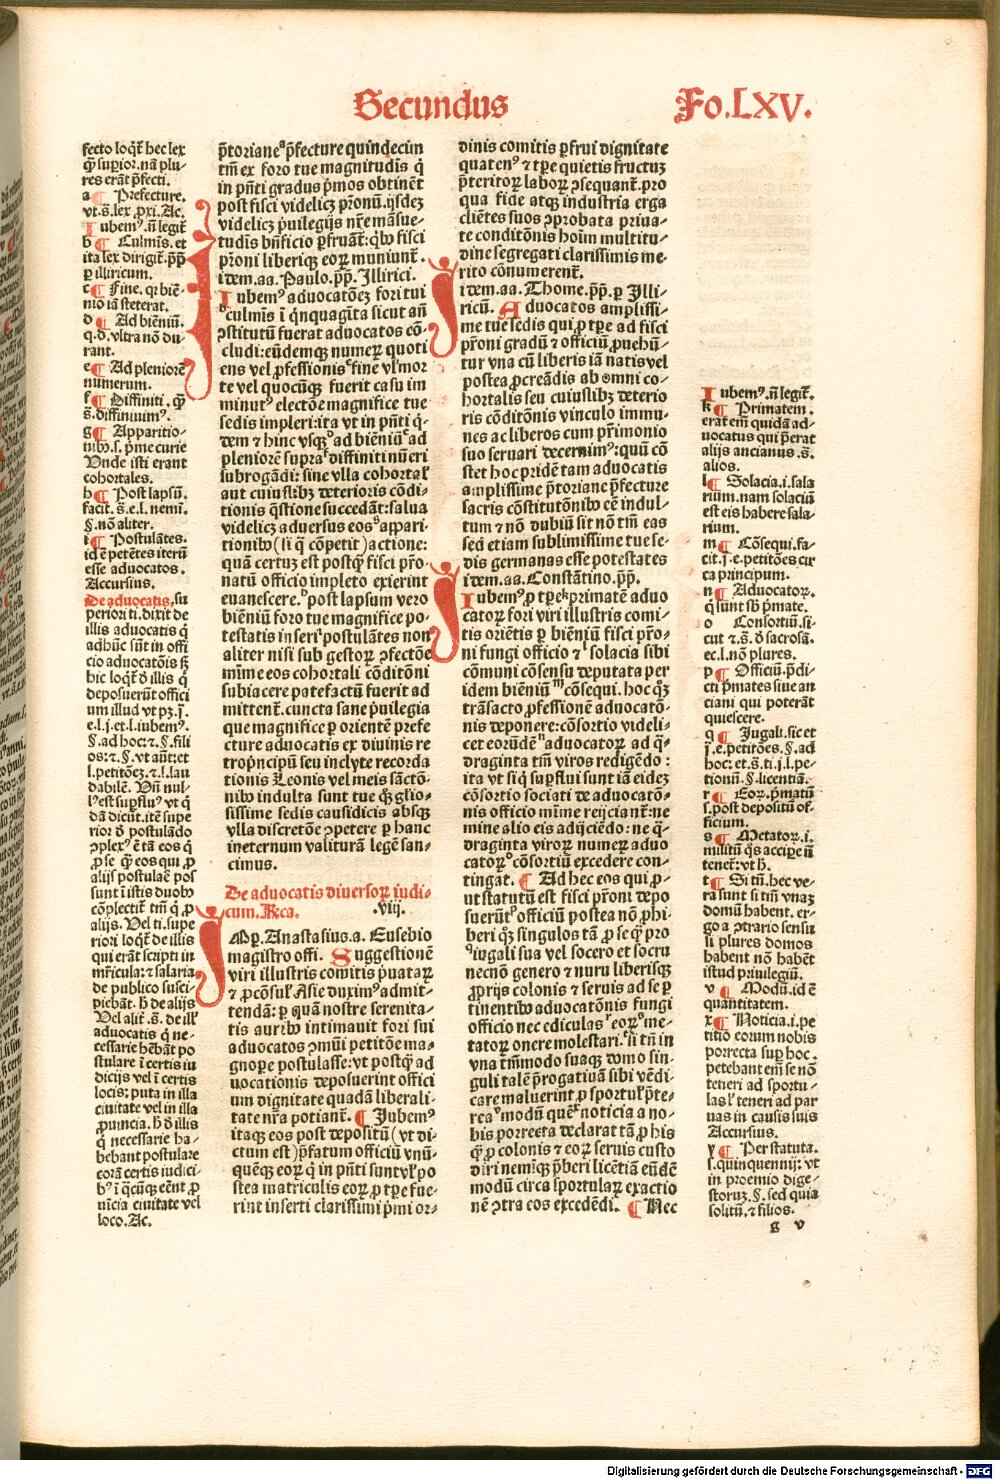 Secundus
Fo.LXV.
fecto loqt̄ hec lex
q̄ supior. nā plu⸗
res erāt p̄fecti.
a ¶ Prefecture.
vt.s̄.lex ꝓxi. Ac.
Iubemꝰ. n̄ legit̄
b ¶ Culmīs. et
ita lex dirigit̄. p̄p̄
ꝑ illiricum.
c ¶ Fine. qr biē⸗
nio iā steterat.
d ¶ Ad biēniū.
q.d. vltra nō du⸗
rant.
e ¶ Ad pleniorē
numerum.
f ¶ Diffiniti. q̄
s̄. diffiniuimꝰ.
g ¶ Apparitio⸗
nibꝰ. s. p̄me curie
Vnde isti erant
cohortales.
h ¶ Post lapsū.
facit. s̄.e.l. nemī.
§. nō aliter.
i ¶ Postulātes.
id ē petētes iterū
esse aduocatos.
Accursius.
De aduocatis. su
periori ti. dixit de
illis aduocatis q̄
adhuc sūt in offi
cio aduocatōis sꝫ
hic loqt̄ ð illis q̄
deposuerūt offici
um illud vt pꝫ.j.
e.l.j. et.l. iubemꝰ.
§. ad hoc: ⁊.§. fili
os: ⁊.§. vt aūt: et
l. petitōeꝫ. ⁊.l. lau
dabilē. Vn̄ nul⸗
lꝰ est supfluꝰ vt q̄
dā dicūt. itē supe
rior ð postulādo
ꝓ se q̄ eos qui ꝓ
alijs postulāt pos
sunt ī istis duobꝰ
cōplectit̄ tm̄ q̄ ꝓ
alijs. Vel ti. supe
riori loqt̄ de illis
qui erāt scripti in
mr̄icula: ⁊ salaria
de publico susci⸗
piebāt. h̄ de alijs
Vel alit̄ .s̄. de ill'
aduocatis q̄ ne⸗
cessarie hēbāt po
stulare ī certis iu
dicijs vel ī certis
locis: puta in illa
ciuitate vel in illa
ꝓuincia. h̄ ð illis
q̄ necessarie ha⸗
bebant postulare
corā certis iudici⸗
bꝰ ī q̄cūqꝫ eēnt ꝓ
uīcia ciuitate vel
loco. Ac.
p̄toriane p̄fecture quindecim
tm̄ ex foro tue magnitudis q̄
in pn̄ti gradus p̄mos obtinēt
post fisci videlicꝫ p̄ronū. ijsdeꝫ
videlicꝫ p̄uilegijs nr̄e māsue⸗
tudīs bn̄ficio ꝑfruāt̄: qbꝰ fisci
pr̄oni liberiqꝫ eoꝝ muniunt̄.
idem.aa. Paulo.pp̄. Illirici.
Iubemꝰ aduocatōeꝫ fori tui
culmīs ī q̄nquagīta sicut an̄
ↄstitutū fuerat aduocatos cō⸗
cludi: eūdemqꝫ numeꝝ quoti
ens vel ꝓfessionis fine vl' mor
te vel quocūqꝫ fuerit casu im
minutꝰ electōe magnifice tue
sedis impleri: ita vt in pn̄ti q̄⸗
dem ⁊ hinc vsqꝫ ad biēniū ad
pleniorē supra diffiniti nūeri
subrogādi: sine vlla cohortal'
aut cuiuslibꝫ deterioris cōdi⸗
tionis q̄stione succedāt: salua
videlicꝫ aduersus eos appari⸗
tionibꝰ (si q̄ cōpetit) actione:
quā certuꝫ est postqꝫ fisci pr̄o⸗
natū officio impleto exierint
euanescere. post lapsum vero
biēniū foro tue magnifice po⸗
testatis inseri postulātes non
aliter nisi sub gestoꝝ ↄfectōe
mīme eos cohortali cōditōni
subiacere patefactū fuerit ad
mittent̄. cuncta sane p̄uilegia
que magnifice ꝑ orientē prefe
cture aduocatis ex diuinis re
tropncipū seu inclyte recorda
tionis Leonis vel meis sāctō⸗
nibꝰ indulta sunt tue qꝫ glio⸗
sissime sedis causidicis absqꝫ
vlla discretōe ↄpetere ꝑ hanc
ineternum valiturā legē san⸗
cimus.
De aduocatis diuersoꝝ iudi⸗
cum. Rca. .viij.
Imp. Anastasius.a. Eusebio
magistro offi. Suggestionē
viri illustris comitis p̄uataꝝ
⁊ ꝓcōsul' Asie duximꝰ admit⸗
tendā: ꝑ quā nostre serenita⸗
tis auribꝰ intimauit fori sui
aduocatos ↄmūi petitōe ma⸗
gnope postulasse: vt postqꝫ ad
uocationis deposuerint offici
um dignitate quadā liberali⸗
tate nr̄a potiant̄. ¶ Jubemꝰ
itaqꝫ eos post depositū (vt di⸗
ctum est) p̄fatum officiū vnū⸗
quēqꝫ eoꝝ q̄ in pn̄ti sunt vl' po
stea matriculis eoꝝ ꝓ tꝑe fue⸗
rint inserti clarissimi p̄mi or⸗
dinis comitis ꝑfrui dignitate
quatenꝰ ⁊ tꝑe quietis fructuꝫ
p̄teritoꝝ laboꝝ ↄsequant̄. pro
qua fide atqꝫ industria erga
cliētes suos ↄprobata priua⸗
te conditōnis hoīm multitu⸗
dine segregati clarissimis me⸗
rito cōnumerent̄.
idem.aa. Thome. pp̄. ꝑ Illi⸗
ricū. Aduocatos amplissi⸗
me tue sedis qui ꝓ tꝑe ad fisci
pr̄oni gradū ⁊ officiū ꝓuehū⸗
tur vna cū liberis iā natis vel
postea ꝓcreādis ab omni co⸗
hortalis seu cuiuslibꝫ deterio
ris cōditōnis vinculo immu⸗
nes ac liberos cum p̄rimonio
suo seruari decernimꝰ: quū cō
stet hoc pridē tam aduocatis
amplissime p̄toriane p̄fecture
sacris cōstitutōnibꝰ eē indul⸗
tum ⁊ nō dubiū sit nō tm̄ eas
sed etiam sublimissime tue se⸗
dis germanas esse potestates
idem.aa. Constātino. pp̄.
Iubemꝰ ꝓ tꝑe primatē aduo
catoꝝ fori viri illustris comi⸗
tis oriētis ꝑ biēniū fisci pr̄o⸗
ni fungi officio ⁊ solacia sibi
cōmuni cōsensu deputata per
idem biēniū cōsequi. hoc qꝫ
trāsacto ꝓfessionē aduocatō⸗
nis deponere: cōsortio videli⸗
cet eorūdē aduocatoꝝ ad q̄⸗
draginta tm̄ viros redigēdo:
ita vt siq̄ supflui sunt iā eideꝫ
cōsortio sociati de aduocatō⸗
nis officio mīme reijciant̄: ne
mine alio eis adijciēdo: ne q̄⸗
draginta viroꝝ numeꝝ aduo
catoꝝ cōsortiū excedere con⸗
tingat. ¶ Ad hec eos qui ꝓ⸗
ut statutū est fisci pr̄oni depo
suerūt officiū postea nō ꝓhi⸗
beri qꝫ singulos tā ꝓ se q̄ pro
iugali sua vel socero et socru
necnō genero ⁊ nuru liberisqꝫ
ꝓprijs colonis ⁊ seruis ad se ꝑ
tinentibꝰ aduocatōnis fungi
officio nec ediculas eoꝝ me⸗
tatoꝝ onere molestari. si tn̄ in
vna tm̄modo suaqꝫ domo sin⸗
guli talē p̄rogatiuā sibi vēdi⸗
care maluerint ꝓ sportul' p̄te⸗
rea modū quē noticia a no⸗
bis porrecta declarat tā ꝓ his
q̄ ꝓ colonis ⁊ eoꝝ seruis custo
diri neminiqꝫ p̄beri licētiā eūdē
modū circa sportulaꝝ exactio
nē ↄtra eos excedēdi. ¶ Nec
Iubemꝰ. n̄ legit̄.
k ¶ Primatem.
erat em̄ quidā ad⸗
uocatus qui p̄erat
alijs ancianus. s̄.
alios.
l ¶ Solacia. i. sala
rium. nam solaciū
est eis habere sala⸗
rium.
m ¶ Cōsequi. fa⸗
cit. j. e. petitōes cir
ca principum.
n ¶ Aduocatoꝝ.
q̄ sunt sb̄ p̄mate.
o Consortiū. si⸗
cut ⁊.s̄. ð sacrosā.
ec.l. nō plures.
p ¶ Officiū. p̄di⸗
cti p̄mates siue an
ciani qui poterāt
quiescere.
q ¶ Jugali. sic et
j.e. petitōes. §. ad
hoc: et.s̄.ti.j.l. pe⸗
tionū. §. licentiā.
r ¶ Eoꝝ. p̄matū
s. post depositū of⸗
ficium.
s ¶ Metatoꝝ. i.
militū q̄s accipe n̄
tenet̄: vt h̄.
t ¶ Si tn̄. hec ve⸗
ra sunt si tm̄ vnaꝫ
domū habent. er⸗
go a ↄtrario sensu
si plures domos
habent nō habēt
istud priuilegiū.
v ¶ Modū. id ē
quantitatem.
x ¶ Noticia. i. pe
titio eorum nobis
porrecta sup hoc.
petebant em̄ se nō
teneri ad sportu⸗
las l' teneri ad par
uas in causis suis
Accursius.
y ¶ Per statuta.
s. quinquennij: vt
in proemio dige⸗
storuꝫ. §. sed quia
solitū. ⁊ filios.
g v
Digitalisierung gefördert durch die Deutsche Forschungsgemeinschaft - DFG